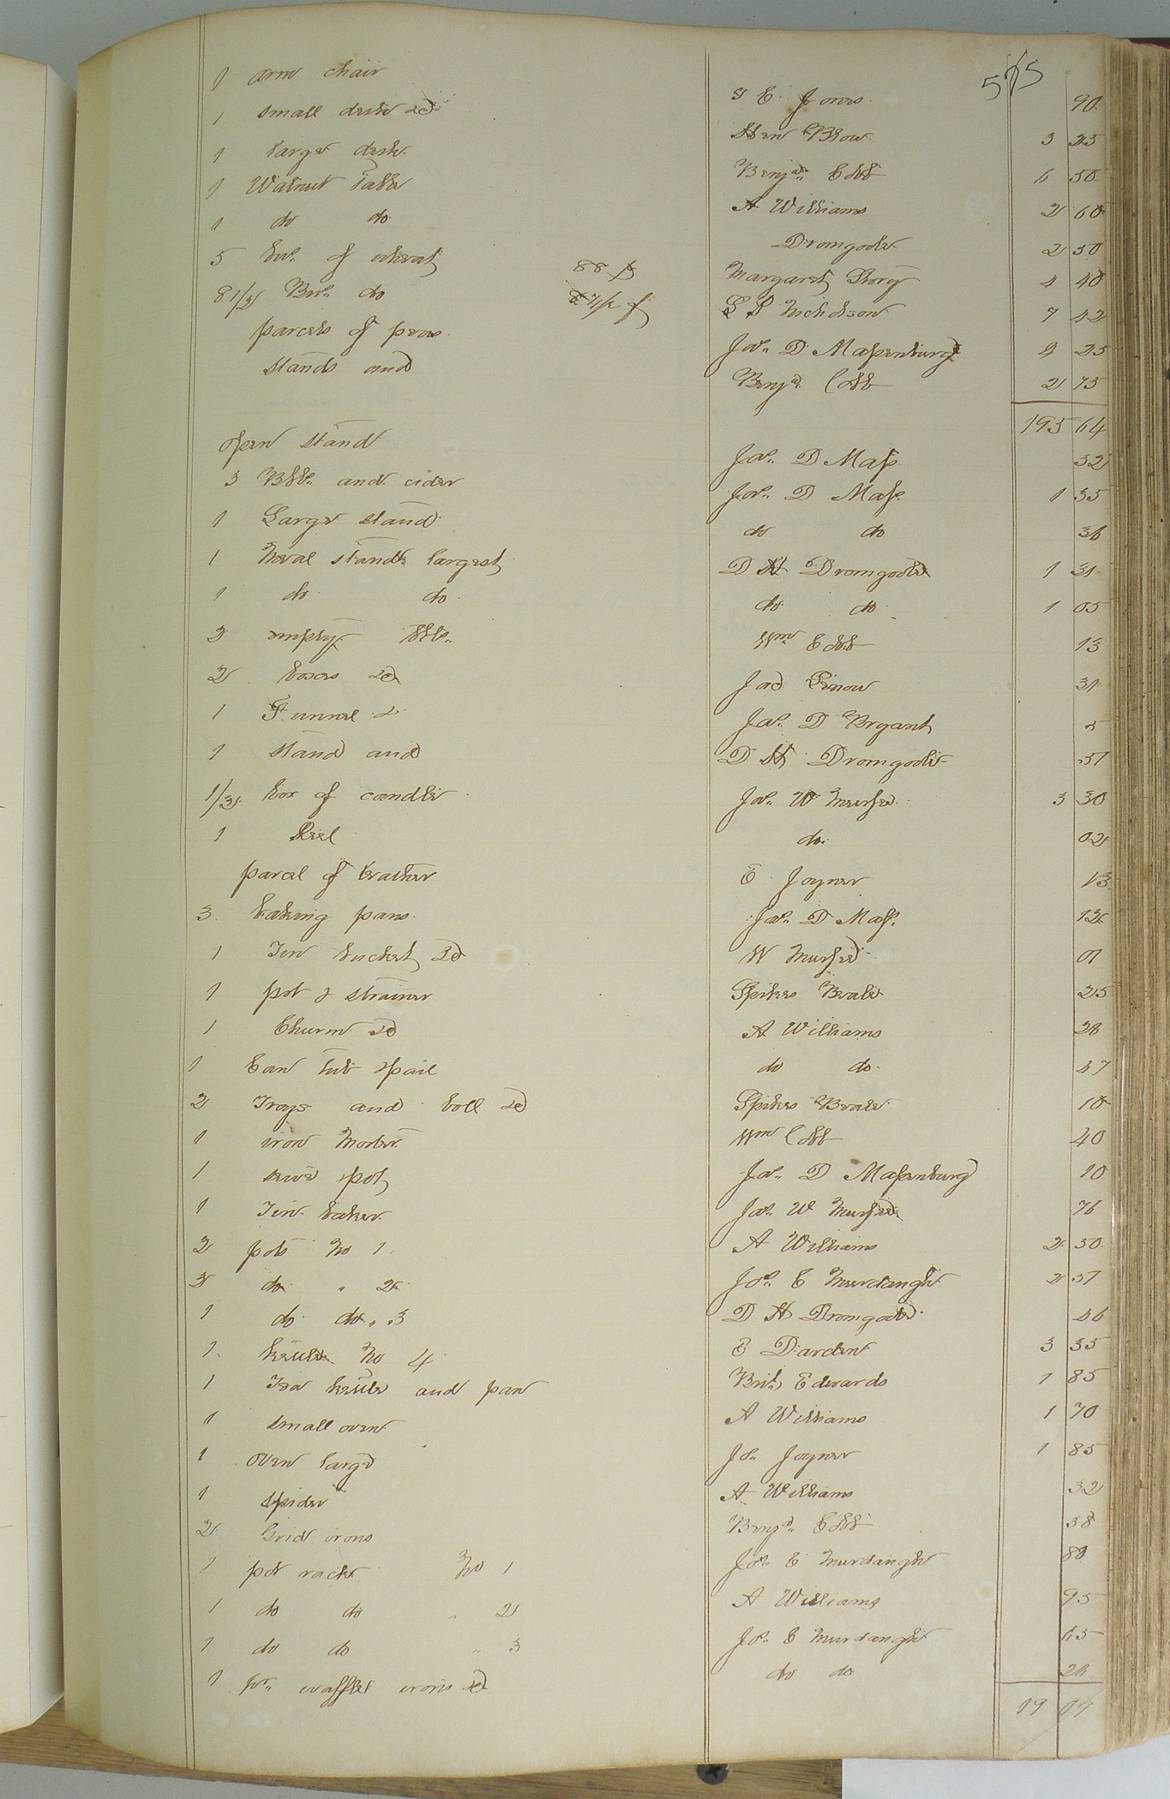 575
1 arm chair J E Jones 90
1 small desk &c Hen Blow 3 25
1 large desk Benjn. Cobb 6 50
1 Walnut Table A Williams 2 60
1 do do Dromgoole 2 50
5 bus. of wheat 88 p Margaret Story 4 40
8 1/2 Bus. do 87 1/2 p L L Nicholson 7 42
parcels of peas Jas. D Massenburg 9 25
stands and Benjn. Cobb 2 75
195 64
open stand Jas. D Mass 32
3 Bbls. and cider Jas. D Mass. 1 35
1 Large stand do do 36
1 meal stands largest D H Dromgoole 1 31
1 do do do do 1 05
3 empty bbls. Wm Cobb 13
2 boxes &c 31
1 Funnel & Jas. D Bryant 5
1 stand and D H Dromgoole 57
1/2 box of candles Jas. W Murfee 3 30
1 Reel do 02
parcel of leather E Joyner 13
3 baking pans Jas. D Mass. 12
1 Tin bucket &c W Murfee 07
1 pot & strainer Spikes Beale 25
1 Churn &c A Williams 28
1 Can tub pail do do 47
2 Trays and boll &c Spikes Beale 10
1 iron Morter Wm Cobb 40
1 pot Jas. D Massenburg 10
1 Tin baker Jas. W Murfee 76
2 pots No 1 A Williams 2 50
2 do " 2 Jos. E Murdaugh 2 57
1 do do " 3 D H Dromgoole 46
1 kettle No 4 E Darden 3 55
1 Tea kettle and pan Brit. Edwards 1 85
1 small oven A Williams 1 70
1 oven large Jo. Joyner 1 85
1 spider A Williams 32
2 Grid irons Benjn. Cobb 38
1 pot rack No 1 Jos. E Murdaugh 80
1 do do " 2 A Williams 95
1 do do " 3 Jos. E Murdaugh 65
1 pr. waffle irons &c do do 28